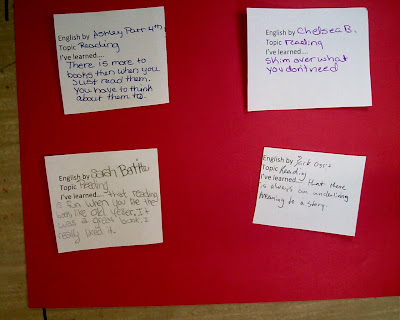 English by Ashley Parr 4th
Topic Reading
I've learned....
There is more to
books then when you
Just read them.
You have to think
about them to.
English by Chelsea B.
Topic reading
I've learned....
skim over what
you don't need
English by Sarah
Topic Reading
I've learned.... that reading
is fun when you like the
book like old Yeller. It
was a great book. I
really liked it.
English by
Topic Reading
I've learned.... that there
is always an underlining
meaning to a story.